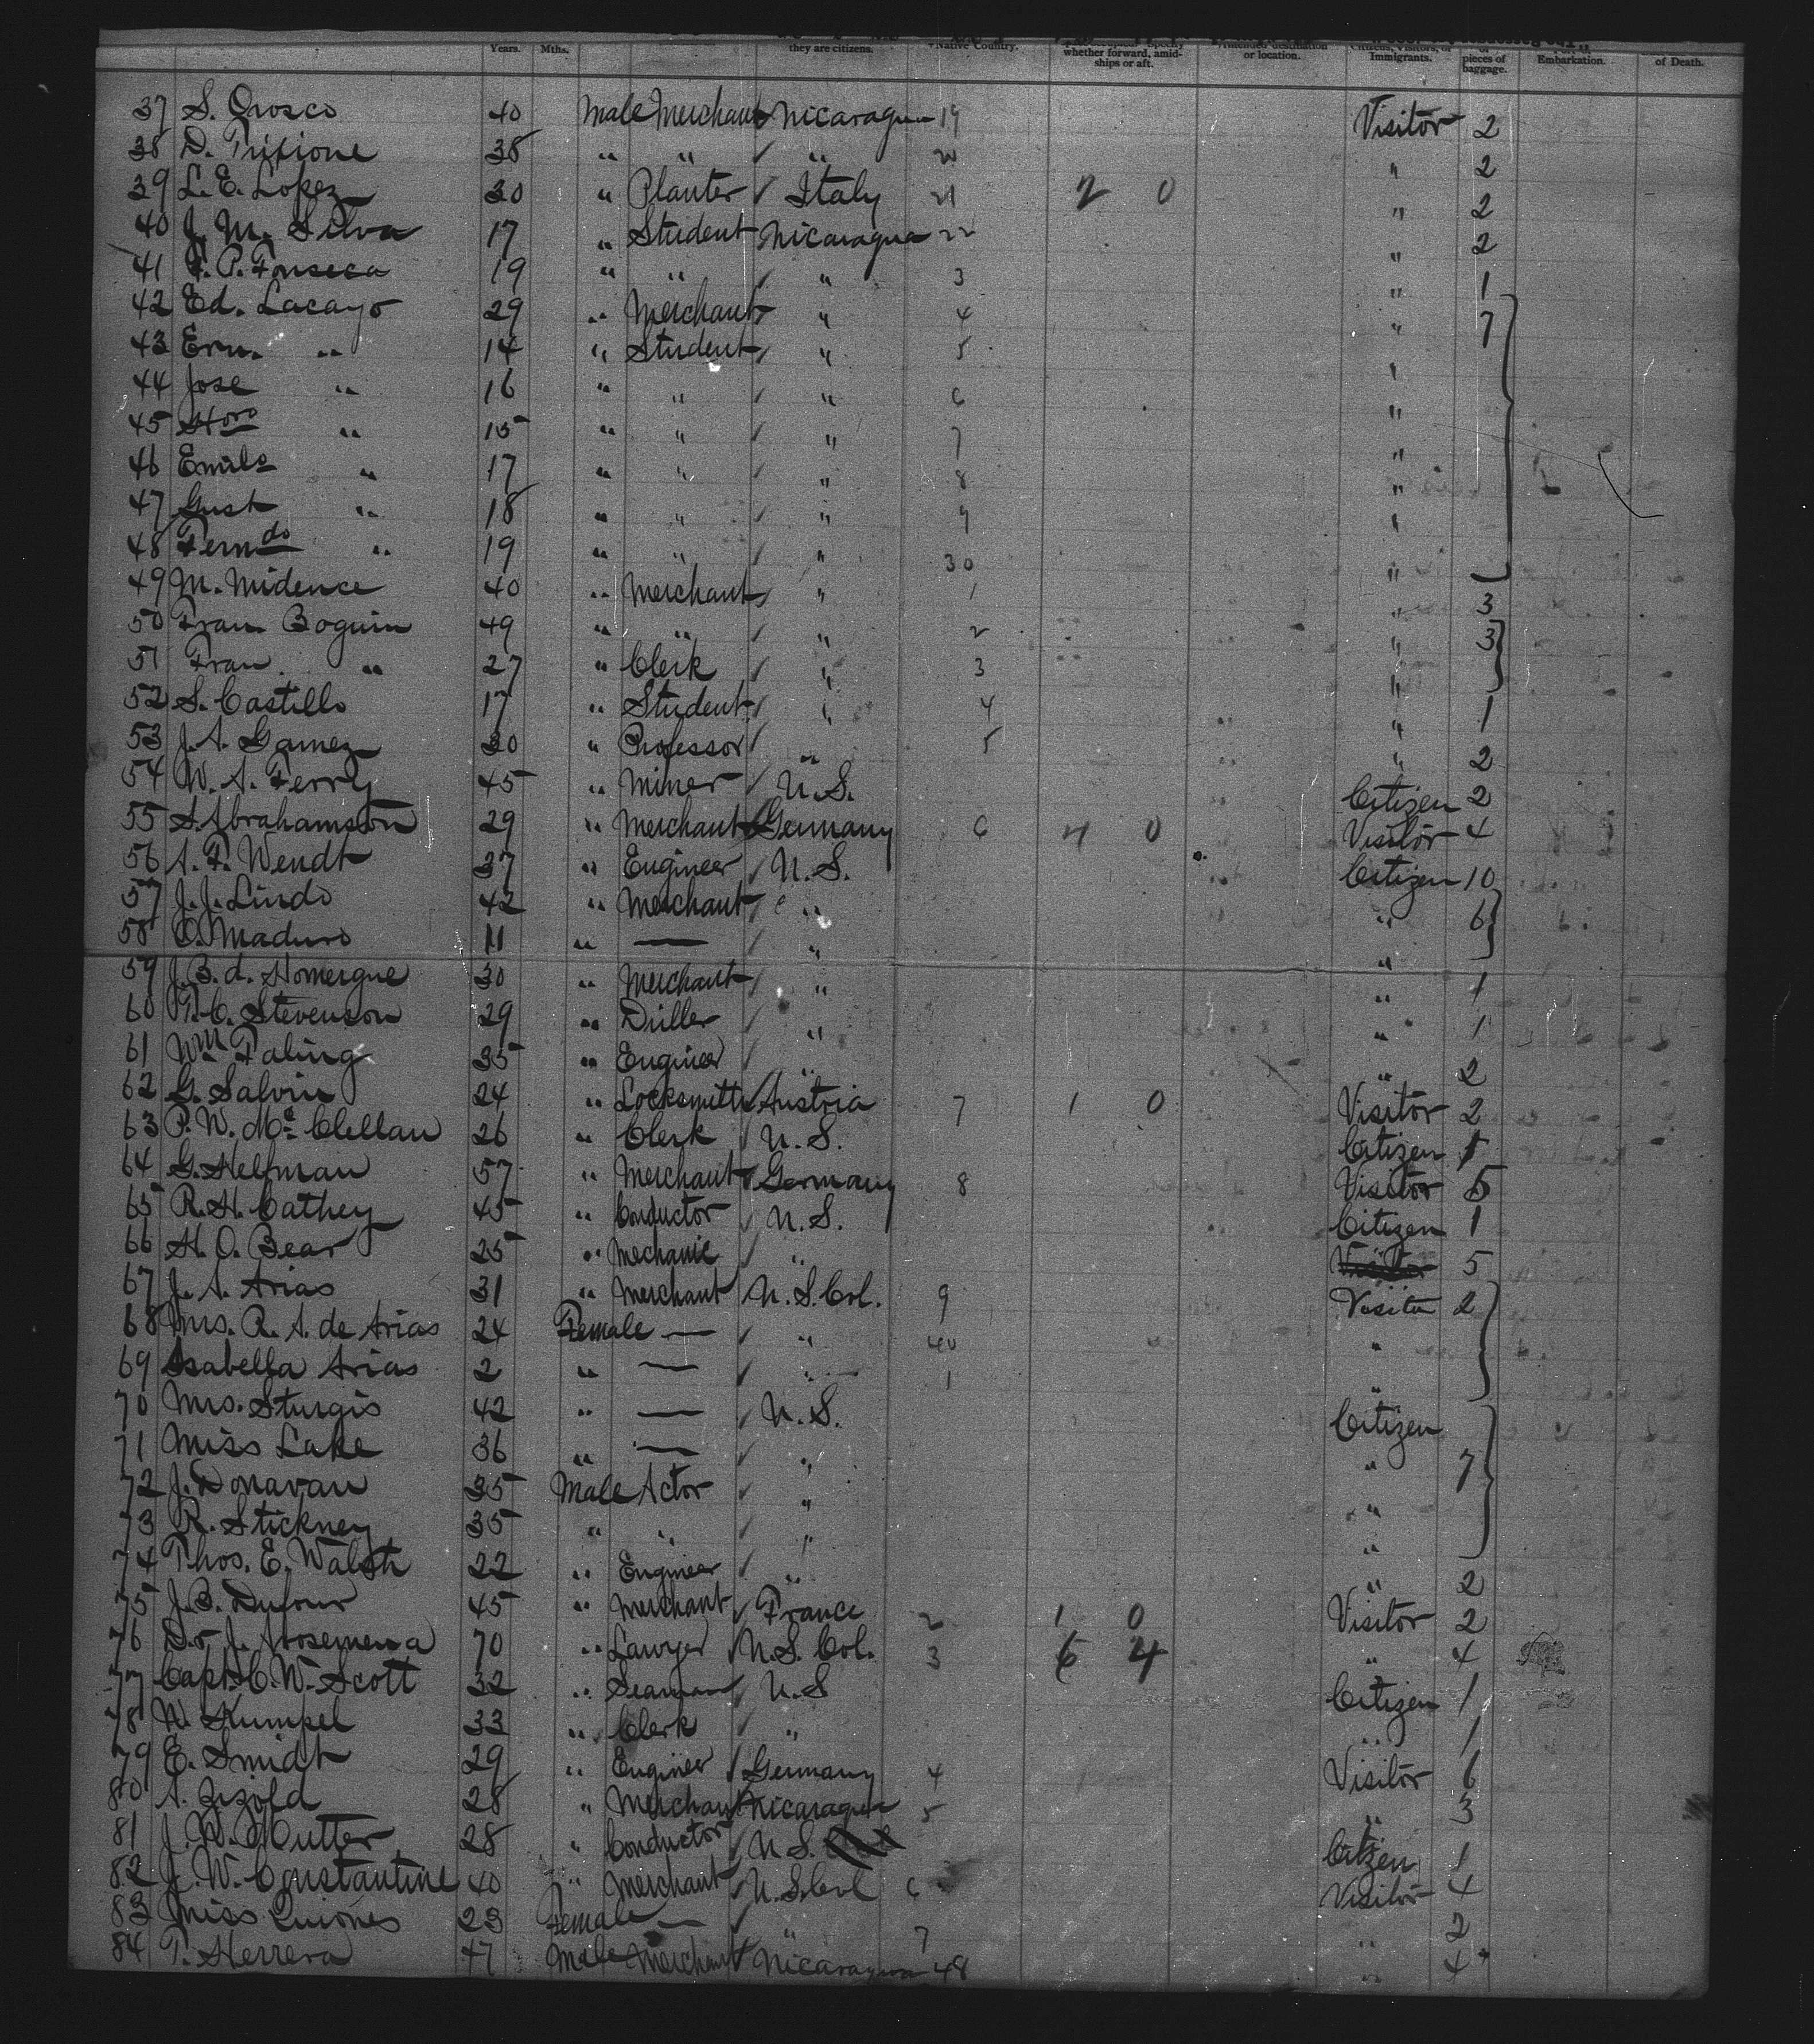 Years. Mths. they are citizens. Native Country. whether forward, amid-ships or aft. Intended destination or location. Citizens, Visitors, or Immigrants. pieces of baggage. Embarkation. of Death.
37 S. Orosco 40 Male Merchant Nicaragua 19 Visitor 2
38 D. 38 " " " 20 " 2
39 L. E. Lopez 30 " Planter Italy 21 2 0 " 2
40 J. M. Silva 17 " Student Nicaragua 22 " 2
41 F. P. Fonseca 19 " " " 3 " 1
42 Ed. Lacayo 29 " Merchant " 4 " 7
43 Ern. " 14 " Student " 5 "
44 Jose " 16 " " " 6 "
45 Horo " 15 " " " 7 "
46 Emilo " 17 " " " 8 "
47 Gust " 18 " " " 9 "
48 Ferndo " 19 " " " 30 "
49 M. Midence 40 " Merchant " 1 " 3
50 Fran Boquin 49 " " " 2 " 3
51 Fran. " 27 " Clerk " 3 "
52 S. Castillo 17 " Student " 4 " 1
53 J. A. Gamez 30 " Professor " 5 " 2
54 W. A. Ferry 45 " Miner U.S. Citizen 2
55 S. Abrahamson 29 " Merchant Germany 6 4 0 Visitor 4
56 A. F. Wendt 37 " Engineer U.S. Citizen 10
57 J. J. Lindo 42 " Merchant " " 6
58 O. Maduro 11 " — " "
59 J. B. d. Homergue 30 " Merchant " " 1
60 T. C. Stevenson 29 " Driller " " 1
61 Wm Paling 35 " Engineer " " 2
62 G. Salvin 24 " Locksmith Austria 7 1 0 Visitor 2
63 P. W. Mc Clellan 26 " Clerk U.S. Citizen 1
64 G. Helfman 57 " Merchant Germany 8 Visitor 5
65 R. H. Cathey 45 " Conductor U.S. Citizen 1
66 H. O. Bear 25 " Mechanic " Visitor 5
67 J. A. Arias 31 " Merchant U.S. Col. 9 Visitor 2
68 Mrs. R. A. de Arias 24 Female — " 40 "
69 Isabella Arias 2 " — " 1 "
70 Mrs. Sturgis 42 " — U.S. Citizen
71 Miss Lake 36 " — " " 7
72 J. Donavan 35 Male Actor " "
73 R. Stickney 35 " " " "
74 Thos. E. Walsh 22 " Engineer " " 2
75 J. B. Dufour 45 " Merchant France 2 1 0 Visitor 2
76 Dr. J. Arosemena 70 " Lawyer U.S. Col. 3 6 4 " 4
77 Capt. C. W. Scott 32 " Seaman U.S Citizen 1
78 W. Kumpel 33 " Clerk " " 1
79 E. Smidt 29 " Engineer Germany 4 Visitor 6
80 A. Zizold 28 " Merchant Nicaragua 5 " 3
81 J. W. Hutter 28 " Conductor U.S. Citizen 1
82 J. W. Constantine 40 " Merchant U.S. Col 6 Visitor 4
83 Miss Quiones 23 Female — " 7 " 2
84 T. Herrera 47 Male Merchant Nicaragua 48 " 4